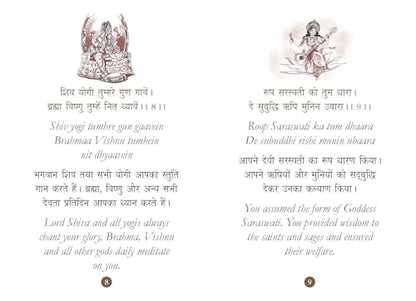 शिव योगी तुम्हरे गुण गावें।
ब्रह्मा विष्णु तुम्हें नित ध्यावें।।8।।
Shiv yogi tumhre gun gaavein
Brahmaa Vishnu tumhein
nit dhyaavein
भगवान शिव तथा सभी योगी आपका स्तुति
गान करते हैं। ब्रह्मा, विष्णु और अन्य सभी
देवता प्रतिदिन आपका ध्यान करते हैं।
Lord Shiva and all yogis always
chant your glory, Brahma, Vishnu
and all other gods daily meditate
on you.
8
रूप सरस्वती को तुम धारा।
दे सुबुद्धि ऋषि मुनिन उबारा।।9।।
Roop Saraswati ka tum dhaara
De subuddhi rishi munin ubaara
आपने देवी सरस्वती का रूप धारण किया।
आपने ऋषियों और मुनियों को सद्बुद्धि
देकर उनका कल्याण किया।
You assumed the form of Goddess
Saraswati. You provided wisdom to
the saints and sages and ensured
their welfare.
9